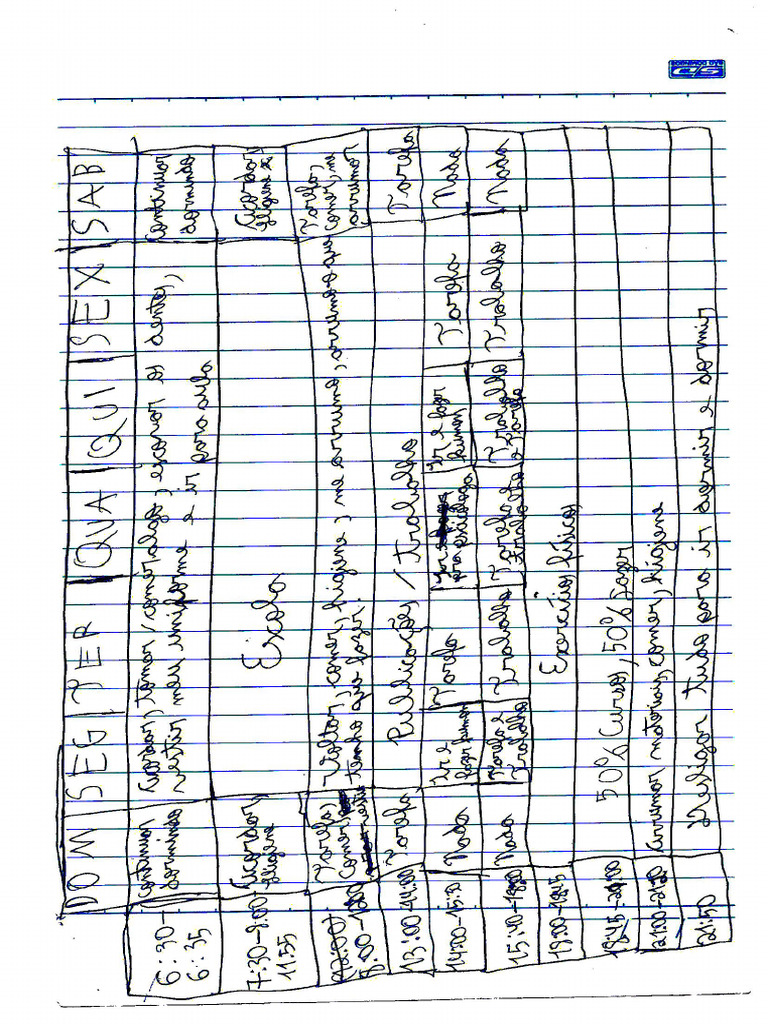 DOM | SEG | TER | QUA | QUI | SEX | SAB
6:30-
6:35
continuar
dormindo
Acordar, tomar / comer algo, escovar os dentes,
vestir meu uniforme e ir para aula
continuar
dormindo
7:30-8:00-
11:55
Acordar,
Higiene
Escola
Acordar,
Higiene
12:00/
Tarefa,
comer,
Voltar, comer, higiene, me arrumo, arrumo o que
tenho que fazer.
Tarefa,
comer, me
arrumar
13:00-14:00
Tarefa
Publicações / trabalho
Tarefa
14:00-15:30
Nada
Ir e
fazer kumon
Tarefa
pra psicóloga
Ir e fazer
kumon
Tarefa
Nada
15:40-18:00
Nada
Tarefa e
Trabalho
Trabalho
Tarefa e
Trabalho
Trabalho
e Tarefa
Trabalho
Nada
18:00-18:45
Exercícios físicos
18:45-20:00
50% Curso, 50% Lazer
21:00-21:30
Arrumar materiais, comer, higiene
21:50
Desligar tudo para ir dormir e dormir